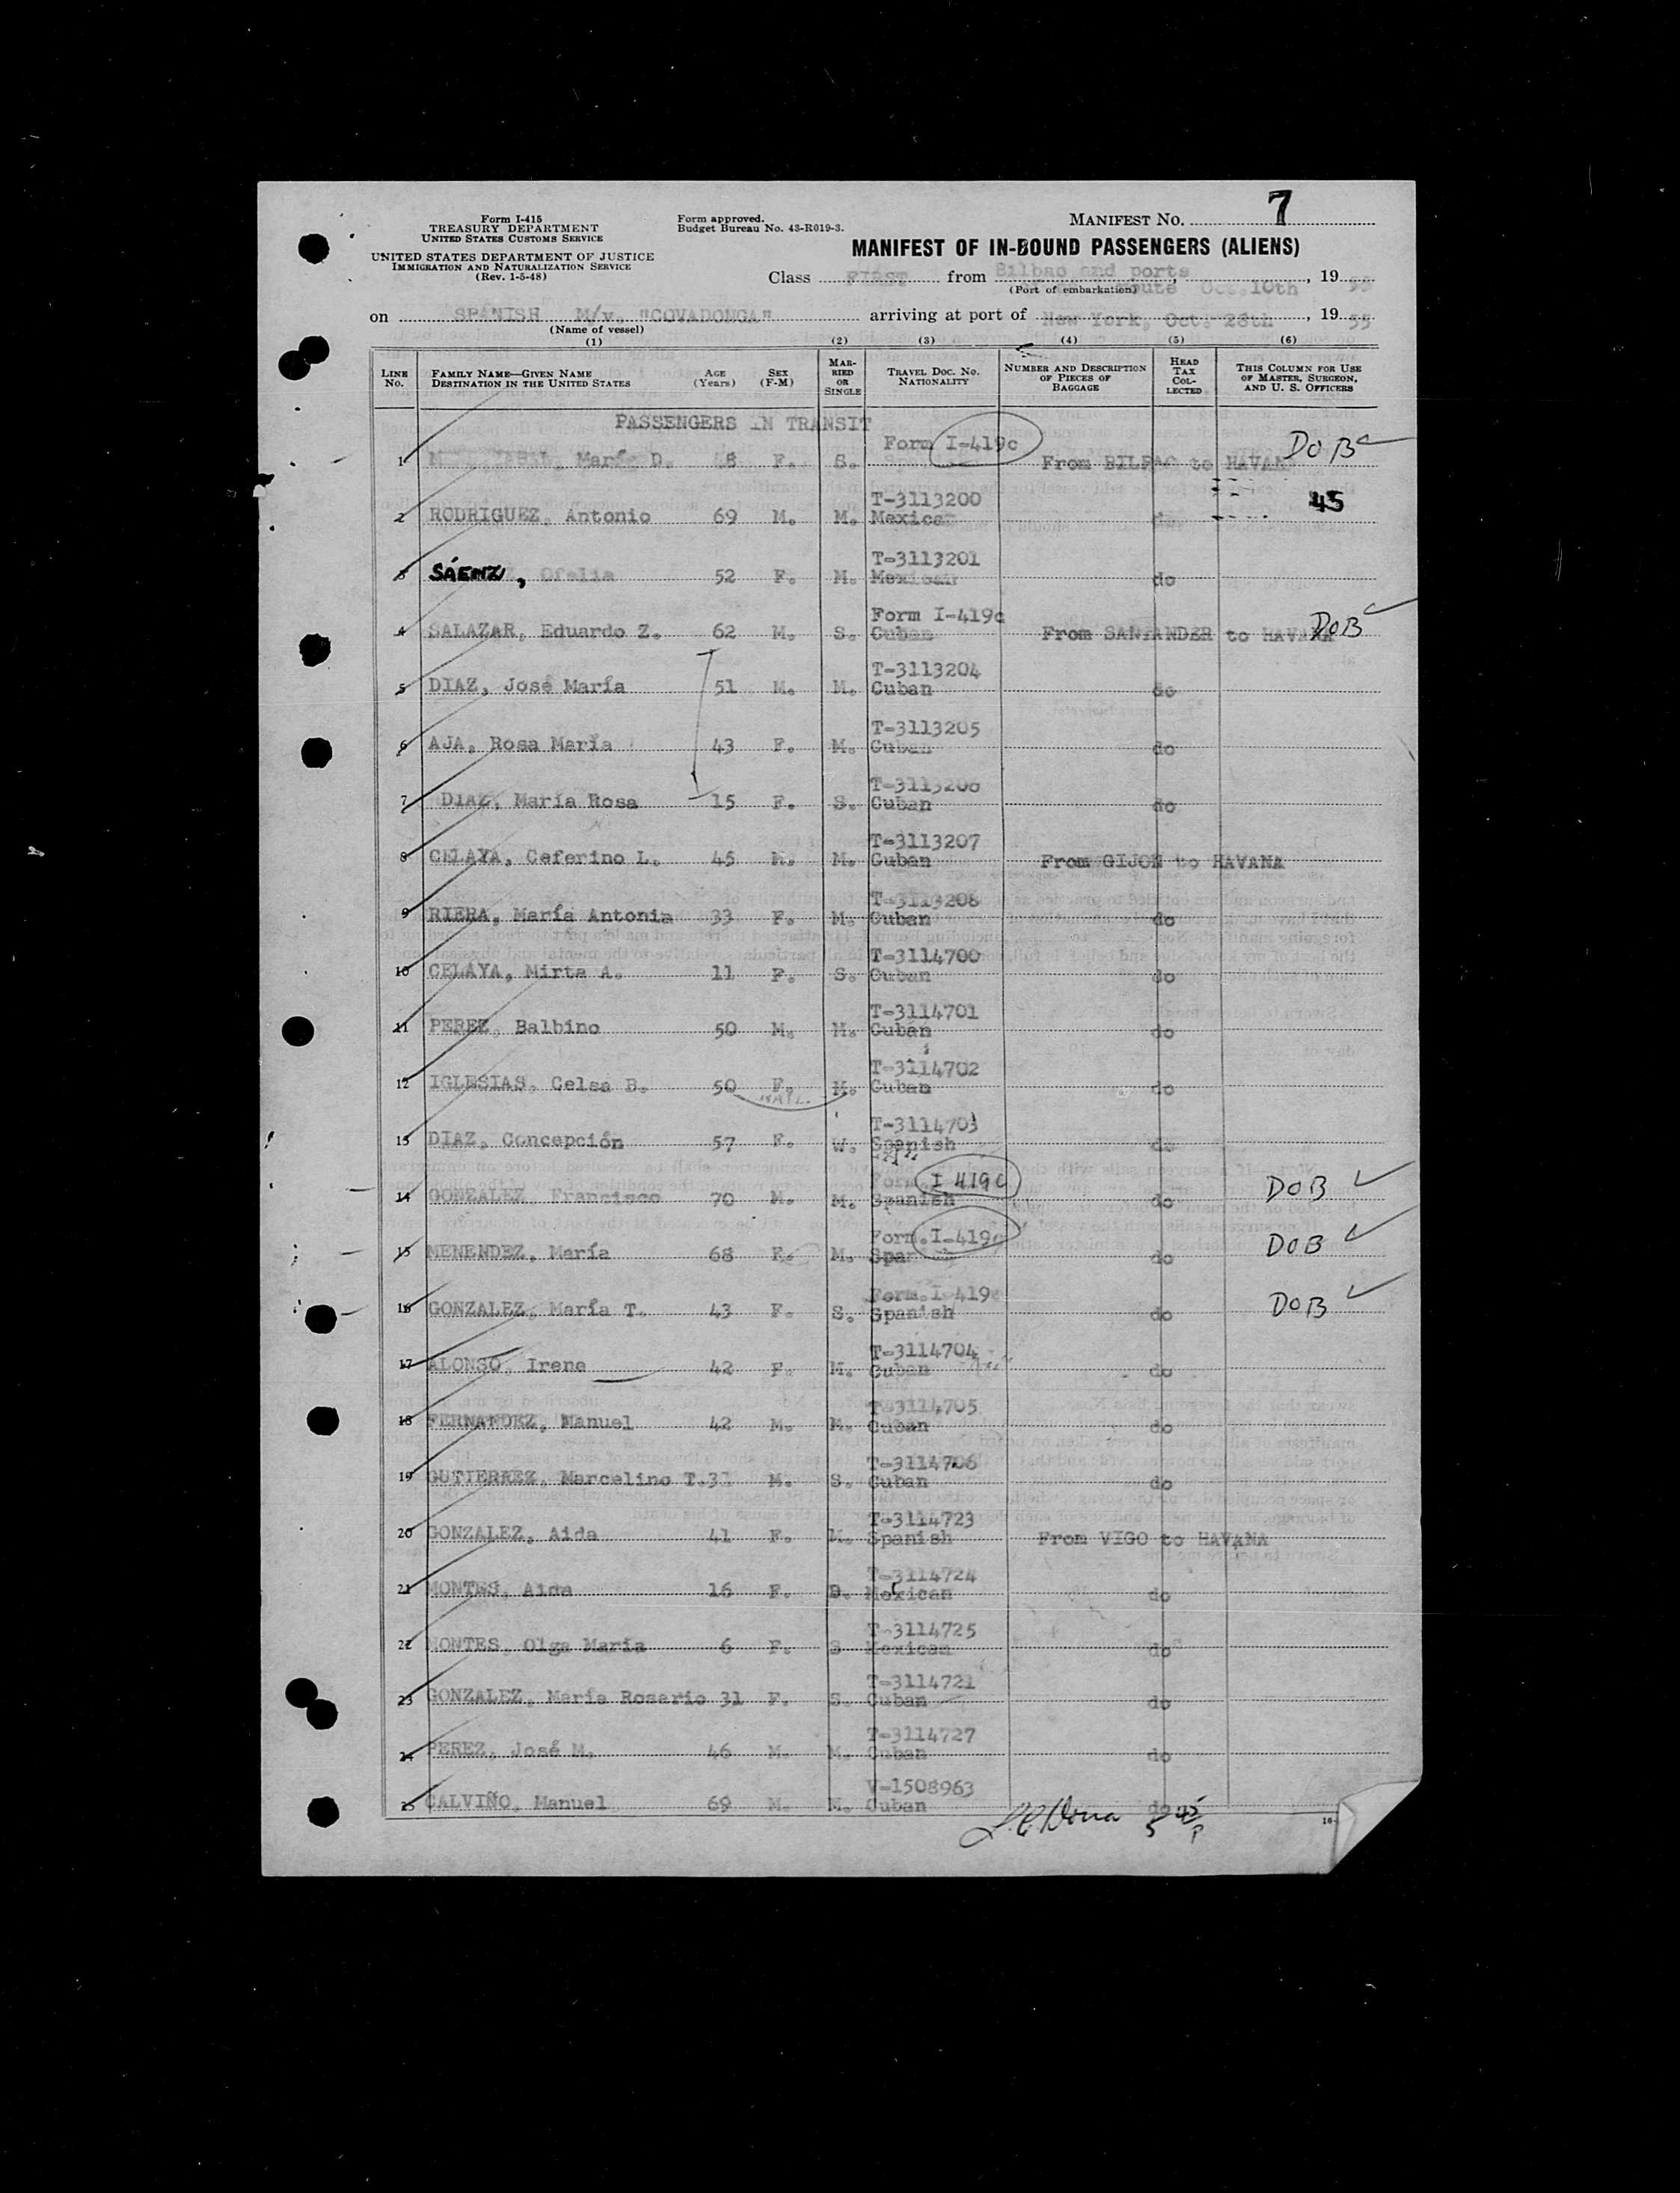 Form I-415
TREASURY DEPARTMENT
UNITED STATES CUSTOMS SERVICE
UNITED STATES DEPARTMENT OF JUSTICE
IMMIGRATION AND NATURALIZATION SERVICE
(Rev. 1-5-48)
Form approved.
Budget Bureau No. 43-R019-3.
MANIFEST No. 7
MANIFEST OF IN-BOUND PASSENGERS (ALIENS)
Class FIRST from Bilbao and ports, 1955
(Port of embarkation) route Oct. 10th
on SPANISH M/v. "COVADONGA" arriving at port of New York, Oct. 28th, 1955
(Name of vessel)
(1) (2) (3) (4) (5) (6)
LINE No. FAMILY NAME—GIVEN NAME DESTINATION IN THE UNITED STATES AGE (Years) SEX (F-M) MARRIED OR SINGLE TRAVEL DOC. No. NATIONALITY NUMBER AND DESCRIPTION OF PIECES OF BAGGAGE HEAD TAX COLLECTED THIS COLUMN FOR USE OF MASTER, SURGEON, AND U. S. OFFICERS
PASSENGERS IN TRANSIT
Form I-419c DOB
1 María D. F. S. From BILBAO to HAVANA
T-3113200 45
2 RODRIGUEZ, Antonio 69 M. M. Mexican do
T-3113201
3 SÁENZ, Ofelia 52 F. M. Mexican do
Form I-419c
4 SALAZAR, Eduardo Z. 62 M. S. Cuban From SANTANDER to HAVANA DOB
T-3113204
5 DIAZ, José María 51 M. M. Cuban do
T-3113205
6 AJA, Rosa María 43 F. M. Cuban do
T-3113206
7 DIAZ, María Rosa 15 F. S. Cuban do
T-3113207
8 CELAYA, Ceferino L. 45 M. M. Cuban From GIJON to HAVANA
T-3113208
9 RIERA, María Antonia 33 F. M. Cuban do
T-3114700
10 CELAYA, Mirta A. 11 F. S. Cuban do
T-3114701
11 PEREZ, Balbino 50 M. M. Cuban do
T-3114702
12 IGLESIAS, Celsa B. 50 F. M. Cuban do
T-3114703
13 DIAZ, Concepción 57 F. W. Spanish do
Form I 419c
14 GONZALEZ, Francisco 70 M. M. Spanish do DOB
Form I-419c
15 MENENDEZ, María 68 F. M. Spanish do DOB
Form I-419c
16 GONZALEZ, María T. 43 F. S. Spanish do DOB
T-3114704
17 ALONSO, Irene 42 F. M. Cuban do
T-3114705
18 FERNANDEZ, Manuel 42 M. M. Cuban do
T-3114706
19 GUTIERREZ, Marcelino T. M. S. Cuban do
T-3114723
20 GONZALEZ, Aida 41 F. M. Spanish From VIGO to HAVANA
T-3114724
21 MONTES, Aida 16 F. Mexican do
T-3114725
22 MONTES, Olga María 6 F. S Mexican do
T-3114721
23 GONZALEZ, María Rosario 31 F. S. Cuban do
T-3114727
24 PEREZ, José M. 46 M. M. Cuban do
V-1508963
25 CALVIÑO, Manuel 69 M. M. Cuban do